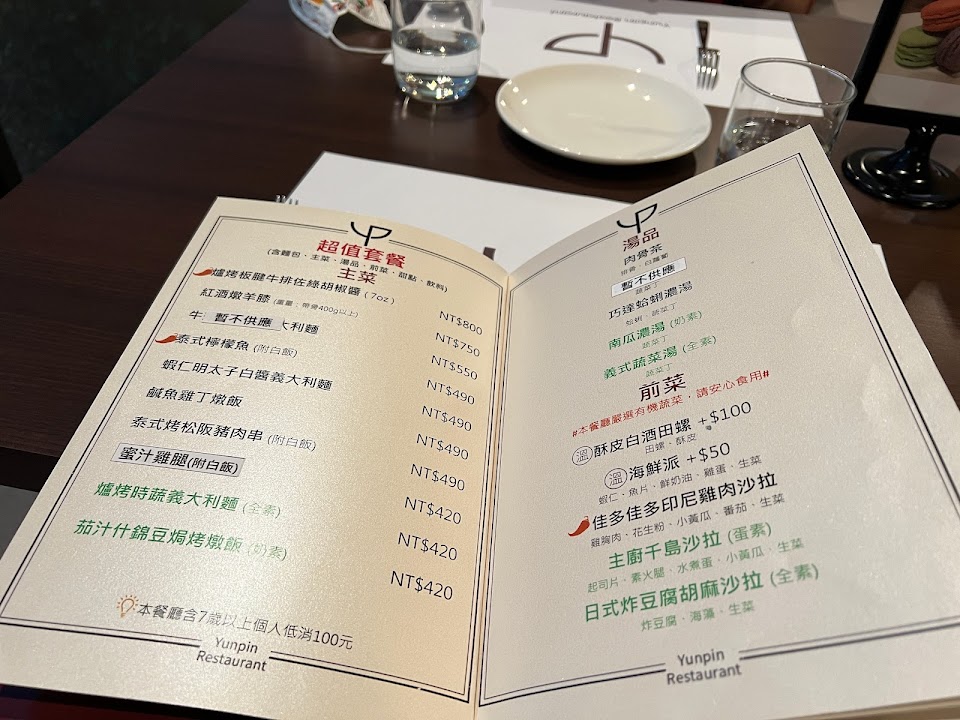 Yunpin Restaurant
超值套餐
(含麵包、主菜、湯品、前菜、甜點、飲料)
主菜
爐烤板腱牛排佐綠胡椒醬 ( 7oz ) NT$800
紅酒燉羊膝 (重量：帶骨400g以上) NT$750
牛 暫不供應 大利麵 NT$550
泰式檸檬魚 (附白飯) NT$490
蝦仁明太子白醬義大利麵 NT$490
鹹魚雞丁燉飯 NT$490
泰式烤松阪豬肉串 (附白飯) NT$490
蜜汁雞腿(附白飯) NT$420
爐烤時蔬義大利麵 (全素) NT$420
茄汁什錦豆焗烤燉飯 (奶素) NT$420
本餐廳含7歲以上個人低消100元
Yunpin
Restaurant
湯品
肉骨茶
排骨、白蘿蔔
暫不供應
蔬菜丁
巧達蛤蜊濃湯
蛤蜊、蔬菜丁
南瓜濃湯 (奶素)
蔬菜丁
義式蔬菜湯 (全素)
蔬菜丁
前菜
#本餐廳嚴選有機蔬菜，請安心食用#
溫 酥皮白酒田螺 +$100
田螺、酥皮
溫 海鮮派 +$50
蝦仁、魚片、鮮奶油、雞蛋、生菜
佳多佳多印尼雞肉沙拉
雞胸肉、花生粉、小黃瓜、番茄、生菜
主廚千島沙拉 (蛋素)
起司片、素火腿、水煮蛋、小黃瓜、生菜
日式炸豆腐胡麻沙拉 (全素)
炸豆腐、海藻、生菜
Yunpin
Restaurant